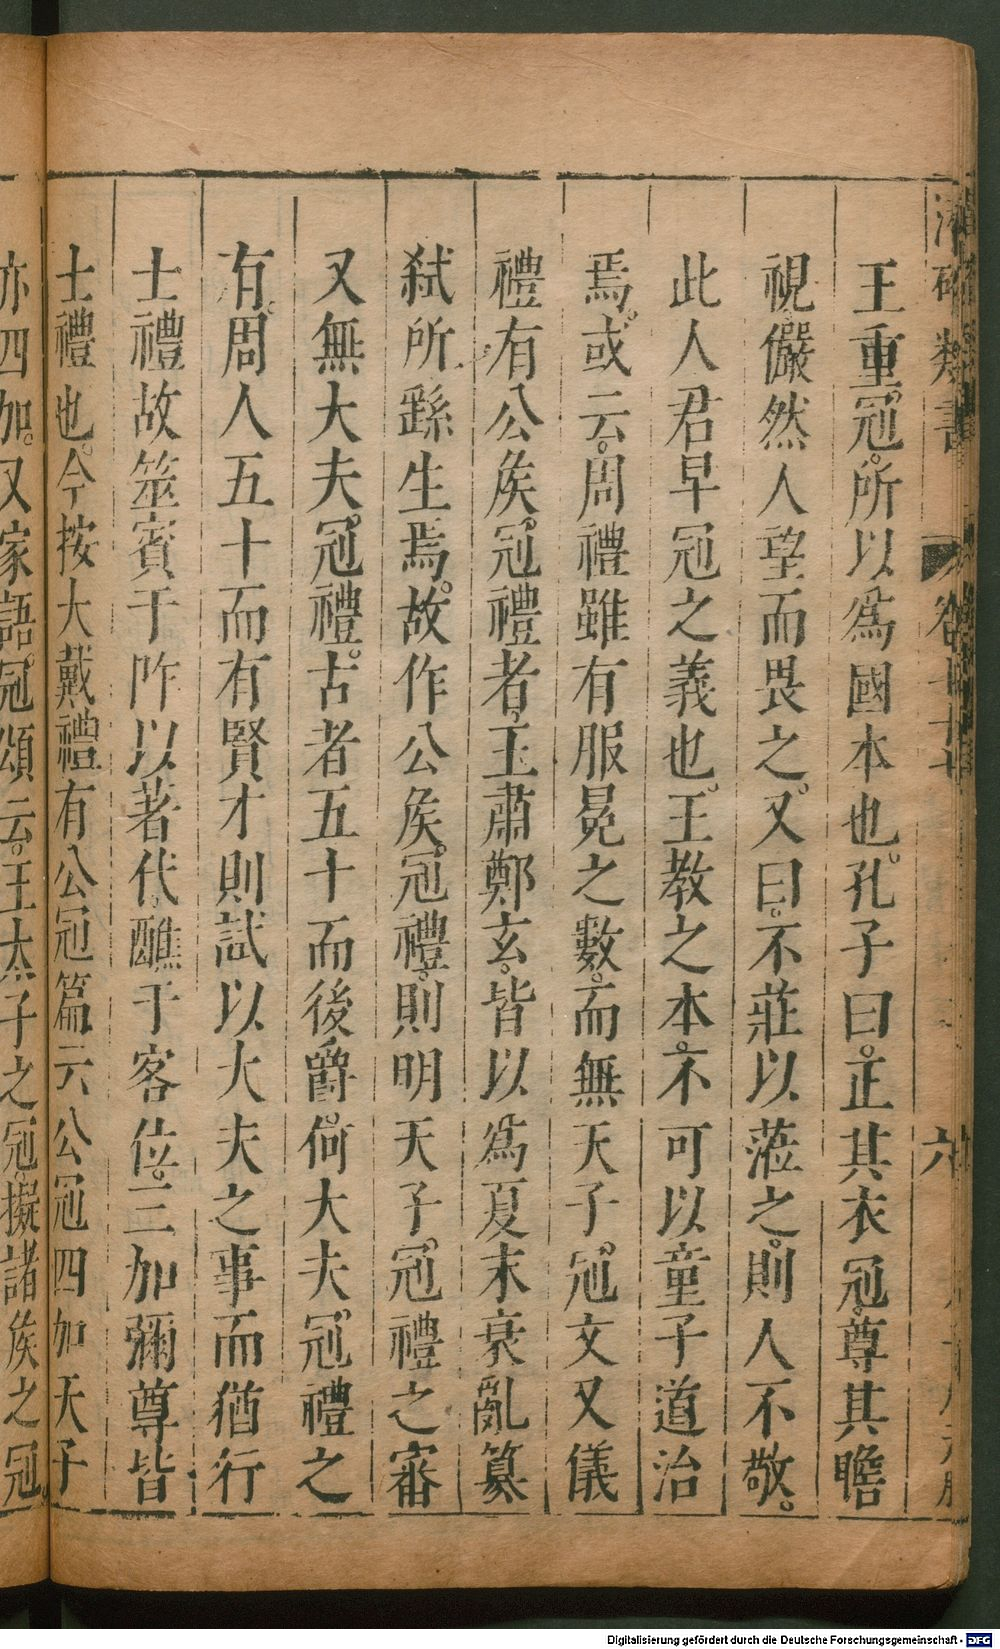 王重冠。所以爲國本也。孔子曰。正其衣冠。尊其瞻
視。儼然人望而畏之。又曰。不莊以蒞之。則人不敬。
此人君早冠之義也。王教之本。不可以童子道治
焉。或云。周禮雖有服冕之數。而無天子冠文又儀
禮有公侯冠禮者。王肅鄭玄。皆以爲夏末衰亂篡
弑所繇生焉。故作公侯冠禮。則明天子冠禮之審
又無大夫冠禮。古者五十而後爵。何大夫冠禮之
有。周人五十而有賢才則試以大夫之事而猶行
士禮故筮賓于阼以著代。醮于客位。三加彌尊皆
士禮也。今按大戴禮有公冠篇云公冠四加天子
亦四加。又家語冠頌云。王太子之冠。擬諸侯之冠。
類書
六
Digitalisierung gefördert durch die Deutsche Forschungsgemeinschaft - DFG